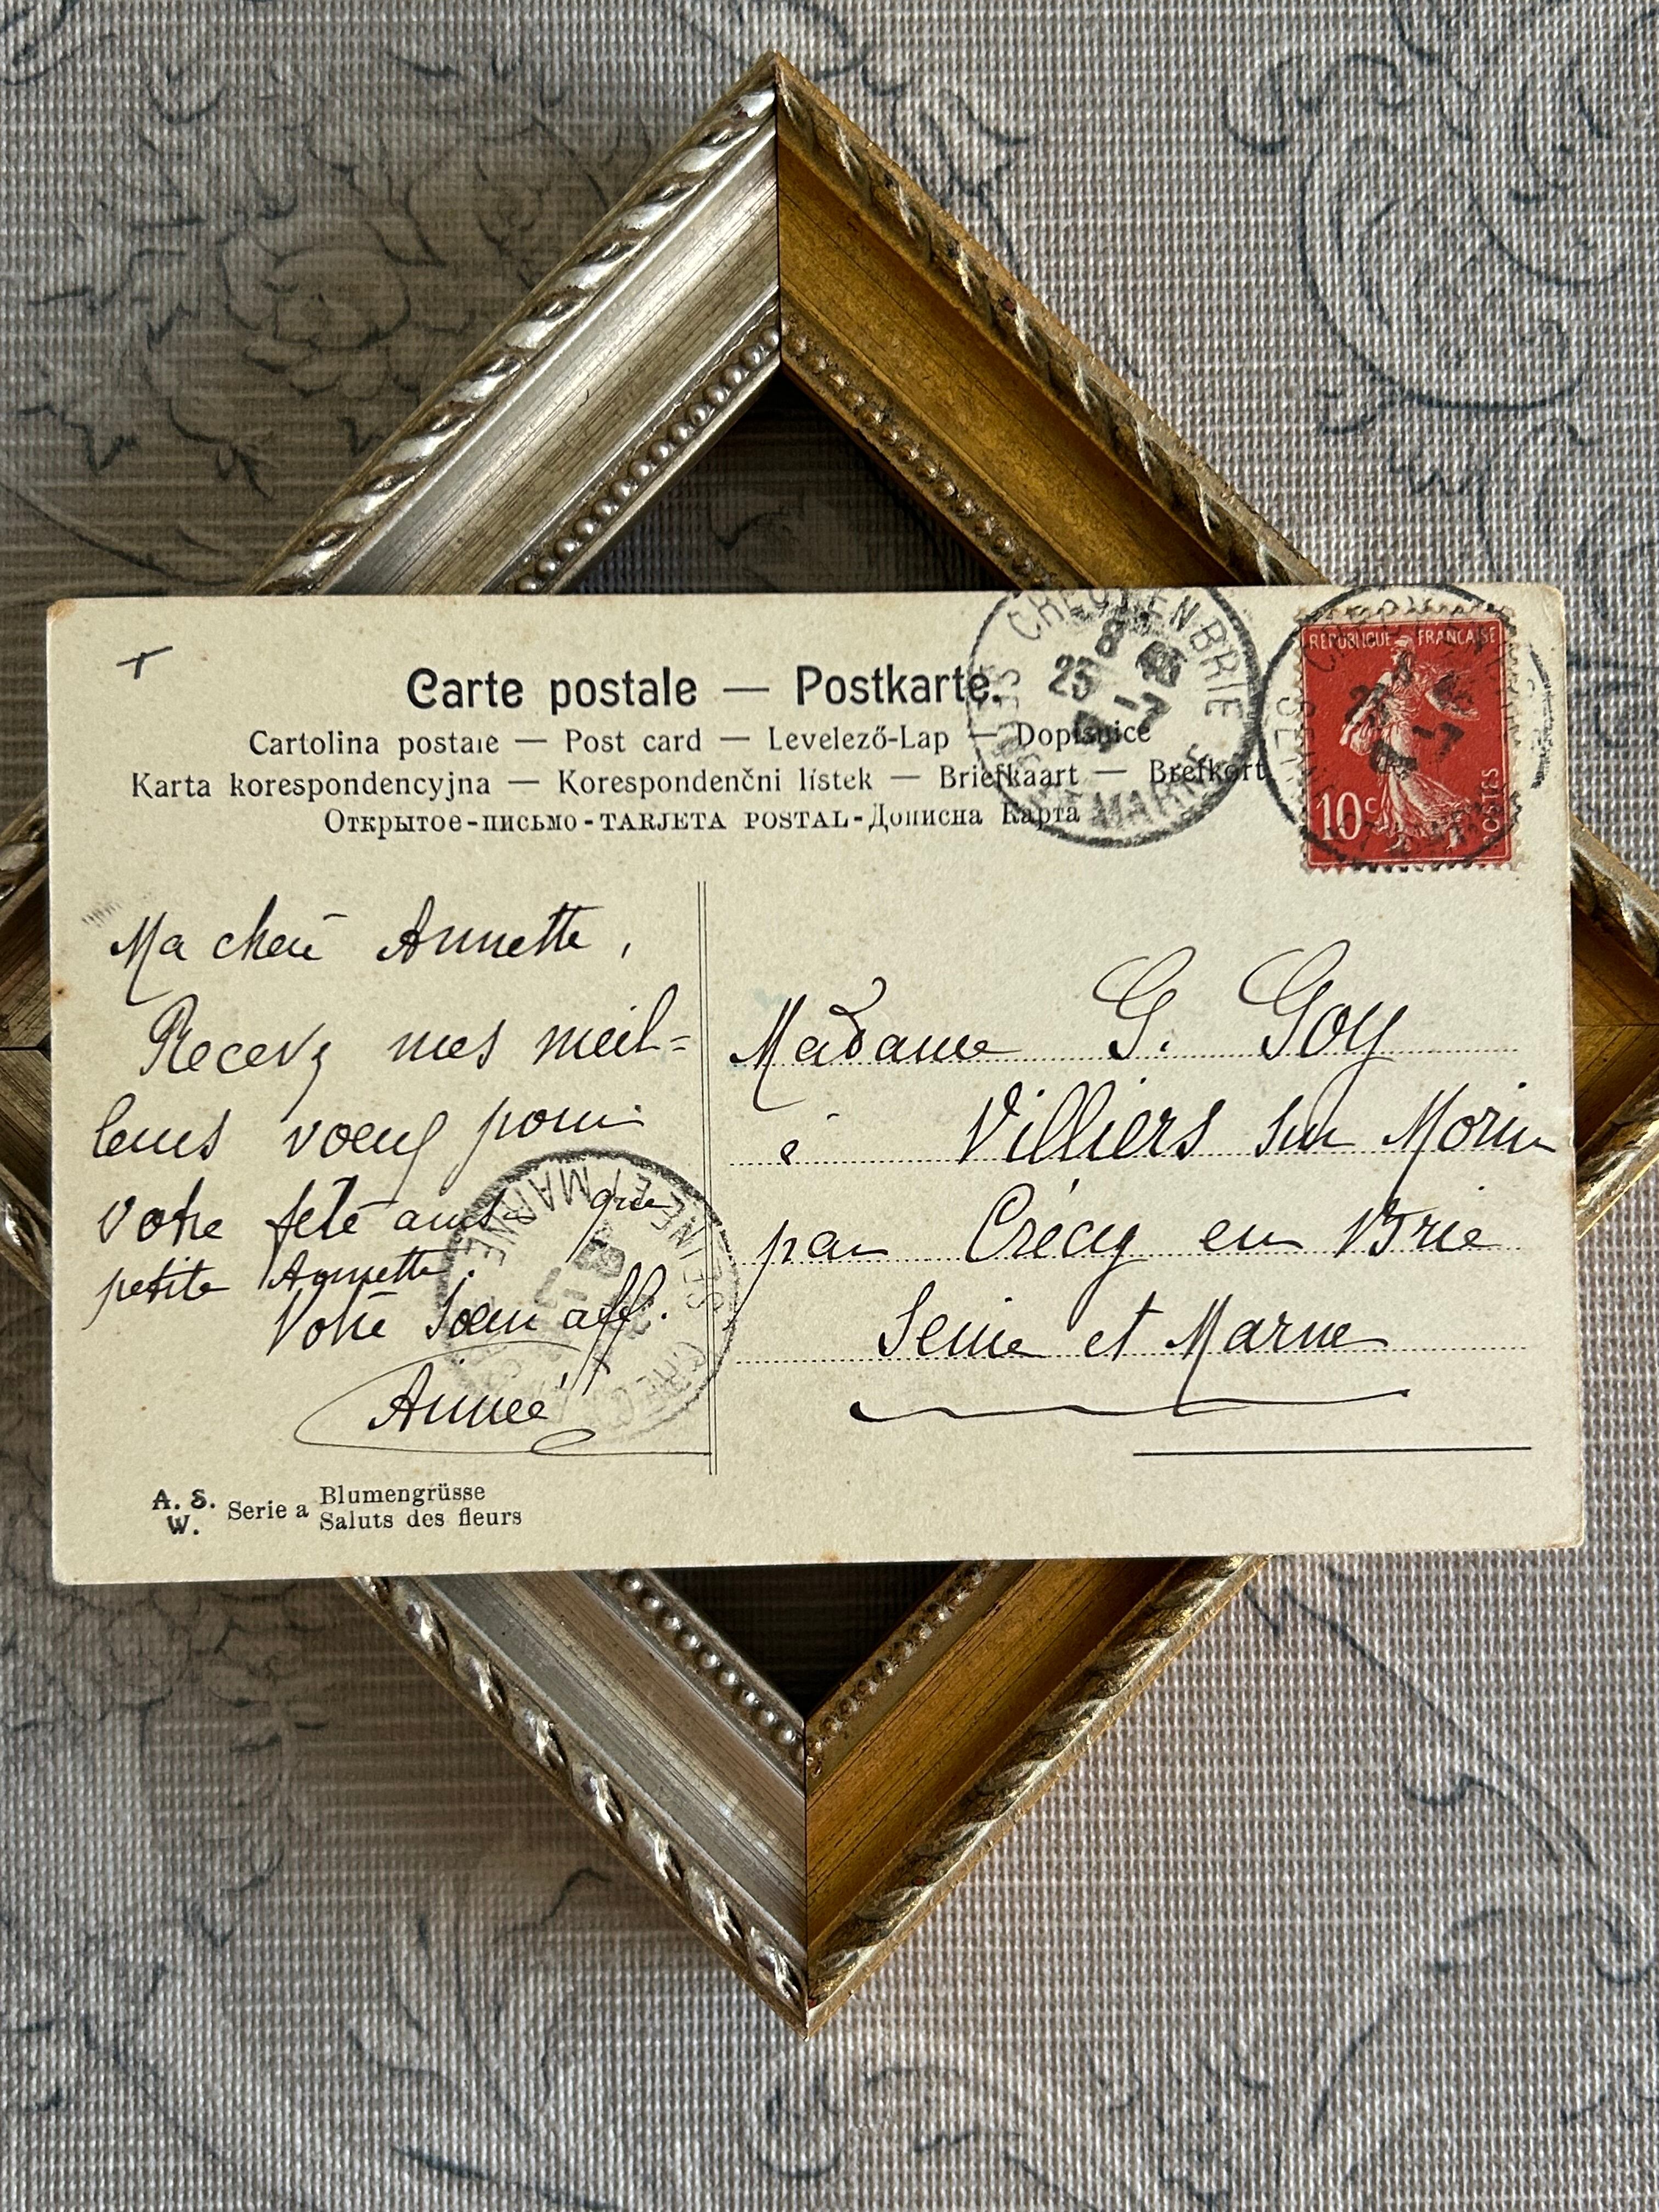 Carte postale — Postkarte.
Cartolina postale — Post card — Levelező-Lap — Dopisnice
Karta korespondencyjna — Korespondenčni lístek — Briefkaart — Brefkort
Открытое-письмо - TARJETA POSTAL - Дописна Карта
CRECY EN BRIE
SEINE ET MARNE
REPUBLIQUE FRANCAISE
10c
POSTES
Ma chère Annette,
Recevez mes meil=
leurs voeux pour
votre fête ainsi que
petite Annette.
Votre Soeur aff.
Aimée
Madame G. Goy
à Villiers sur Morin
par Crécy en Brie
Seine et Marne
SEINE ET MARNE
A. S. W. Serie a Blumengrüsse
Saluts des fleurs